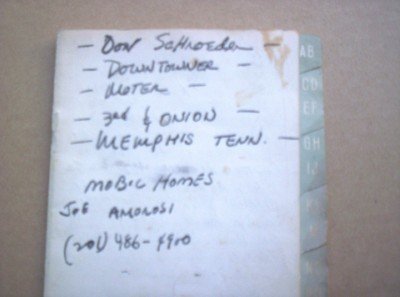 — Don Schroeder —
— DOWNTOWNER —
— MOTER —
— 3rd & ONION —
— MEMPHIS TENN. —
MOBIL HOMES
JOE AMOROSI
(201) 486-4910
AB
CD
EF
GH
IJ